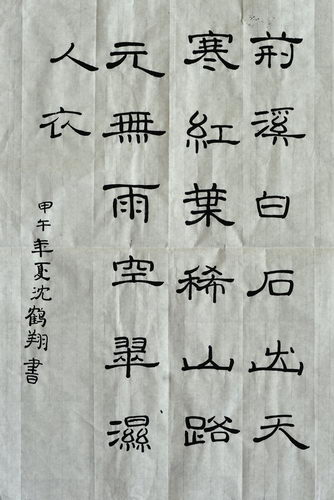 荊溪白石出天
寒紅葉稀山路
元無雨空翠濕
人衣
甲午年夏沈鶴翔書